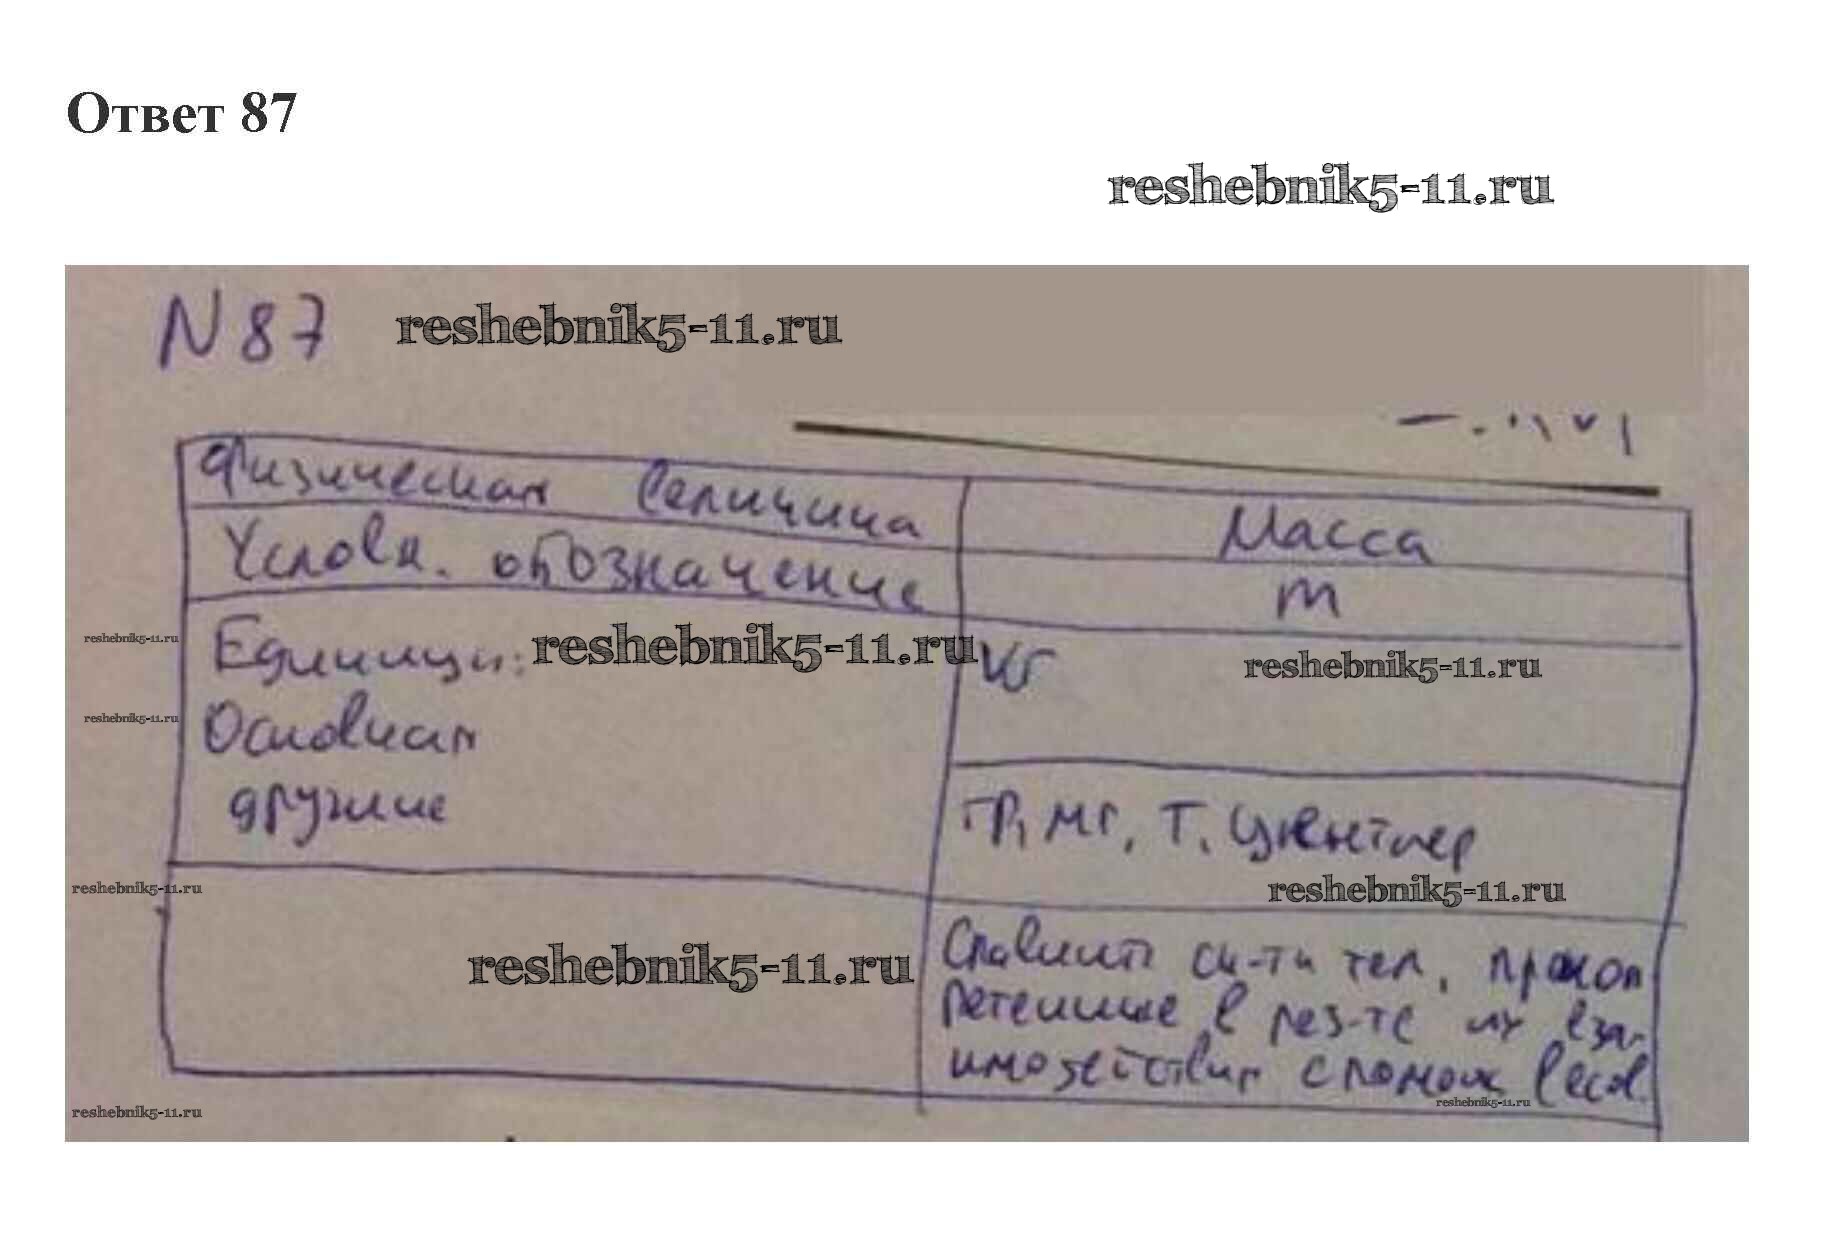 Ответ 87
reshebnik5-11.ru
N 87 reshebnik5-11.ru
Физическая величина Масса
Условн. обозначение m
Единицы: reshebnik5-11.ru кг reshebnik5-11.ru
reshebnik5-11.ru
Основная
reshebnik5-11.ru
другие гр, мг, т, центнер
reshebnik5-11.ru reshebnik5-11.ru
Сравнить ск-ти тел,
reshebnik5-11.ru
в рез-те их вза-
имодействия с помощ весов
reshebnik5-11.ru reshebnik5-11.ru